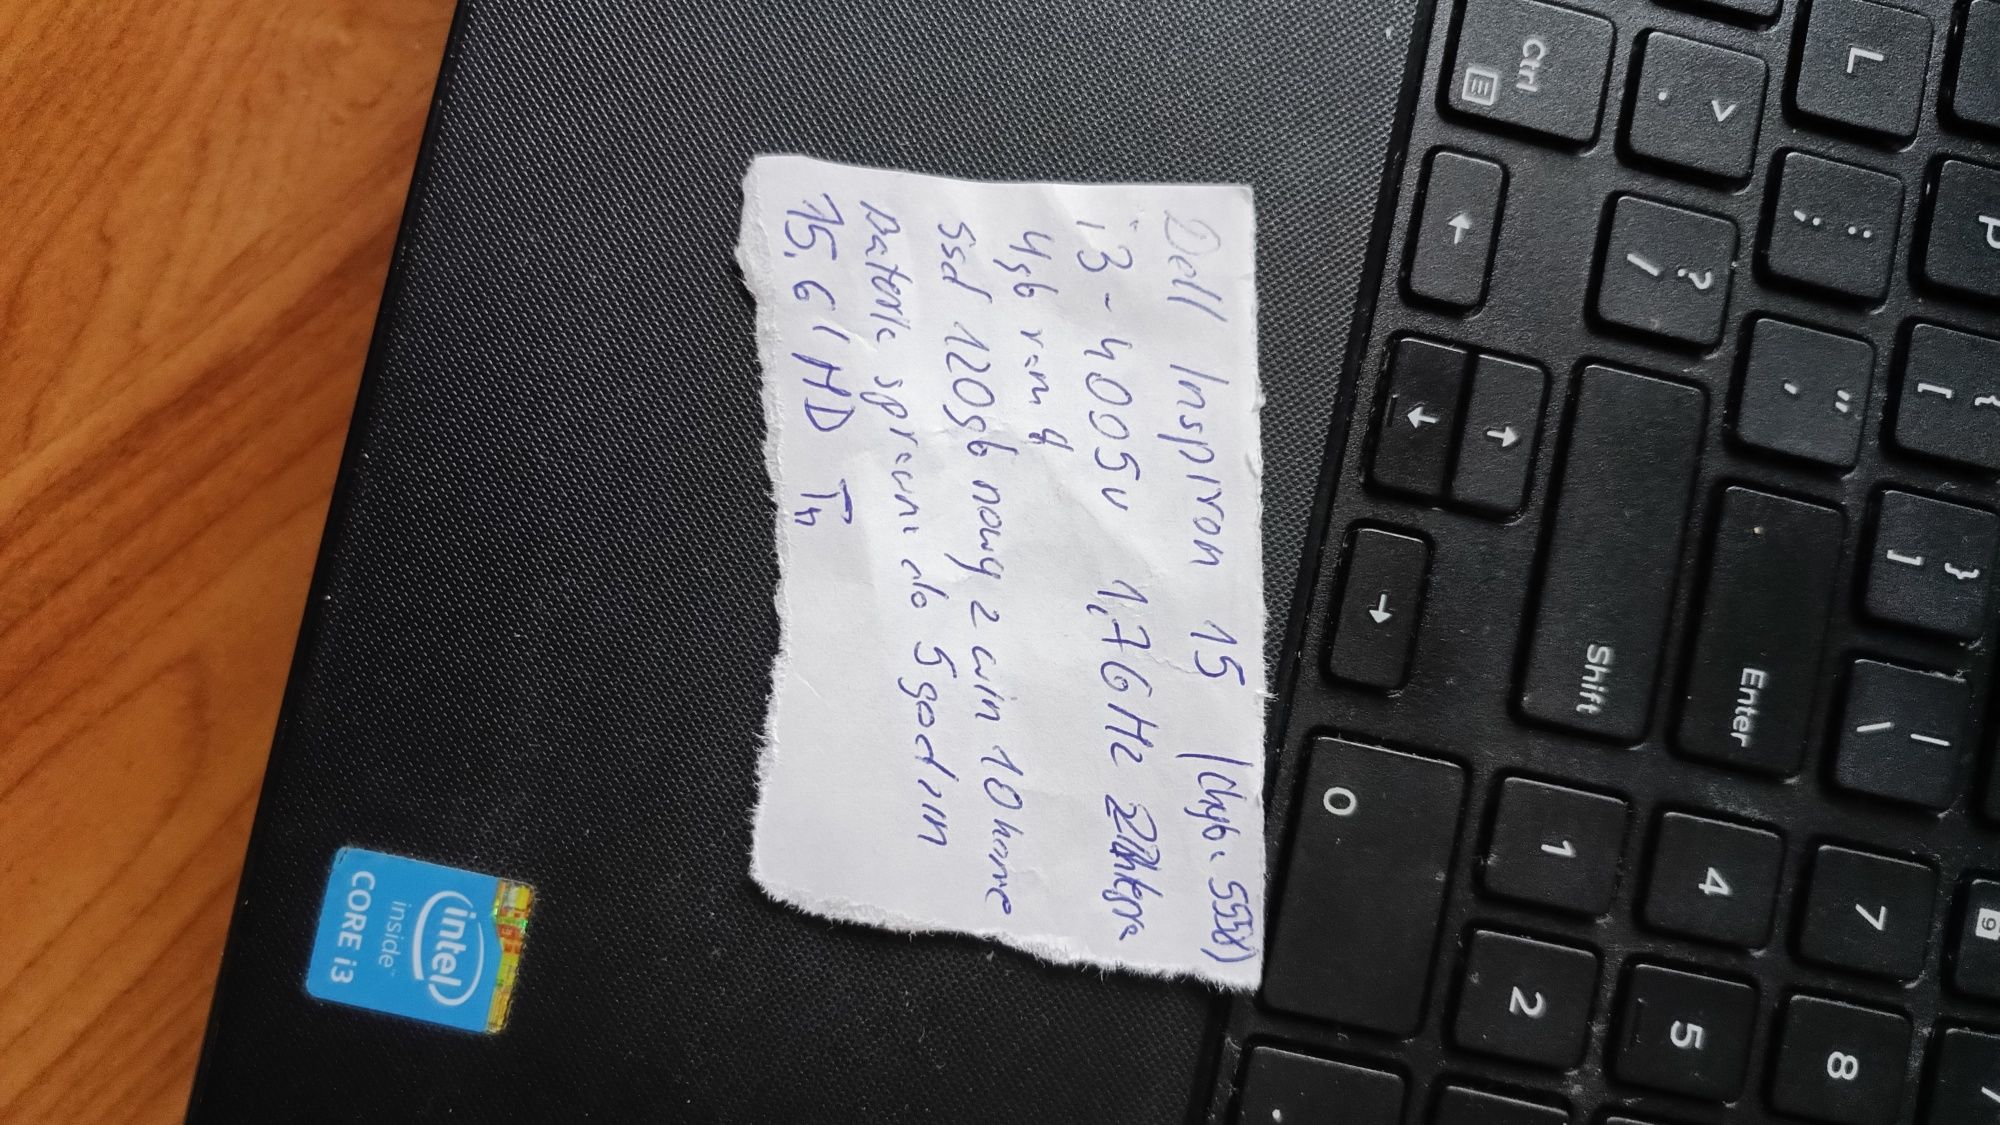 Dell Inspiron 15 (chyba 5558)
i3-4005u 1,7GHz
4gb ram
ssd 120gb nowy z win 10 home
bateria sprawna do 5 godzin
15,6 HD Tn
intel
inside™
CORE i3
Ctrl
> .
L
P
←
? /
: ;
↑
↓
" '
{ [
→
Shift
Enter
} ]
| \
0
1
4
7
9
2
5
8